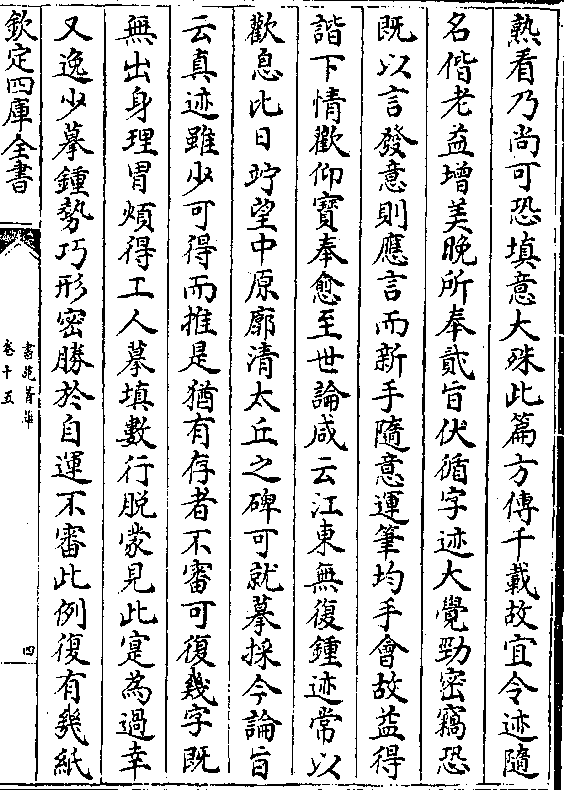 熟看乃尚可恐填意大殊此篇方傳千載故宜令迹隨
名偕老益增美晚所奉貳旨伏循字迹大覺勁密竊恐
既以言發意則應言而新手隨意運筆均手會故益得
諧下情歡仰寶奉愈至世論咸云江東無復鍾迹常以
歡息比日竚望中原廓清太丘之碑可就摹採今論旨
云真迹雖少可得而推是猶有存者不審可復幾字既
無出身理冒煩得工人摹填數行脱蒙見此寔為過幸
又逸少摹鍾勢巧形密勝於自運不審此例復有幾紙
欽定四庫全書
書苑菁華
卷十五
四